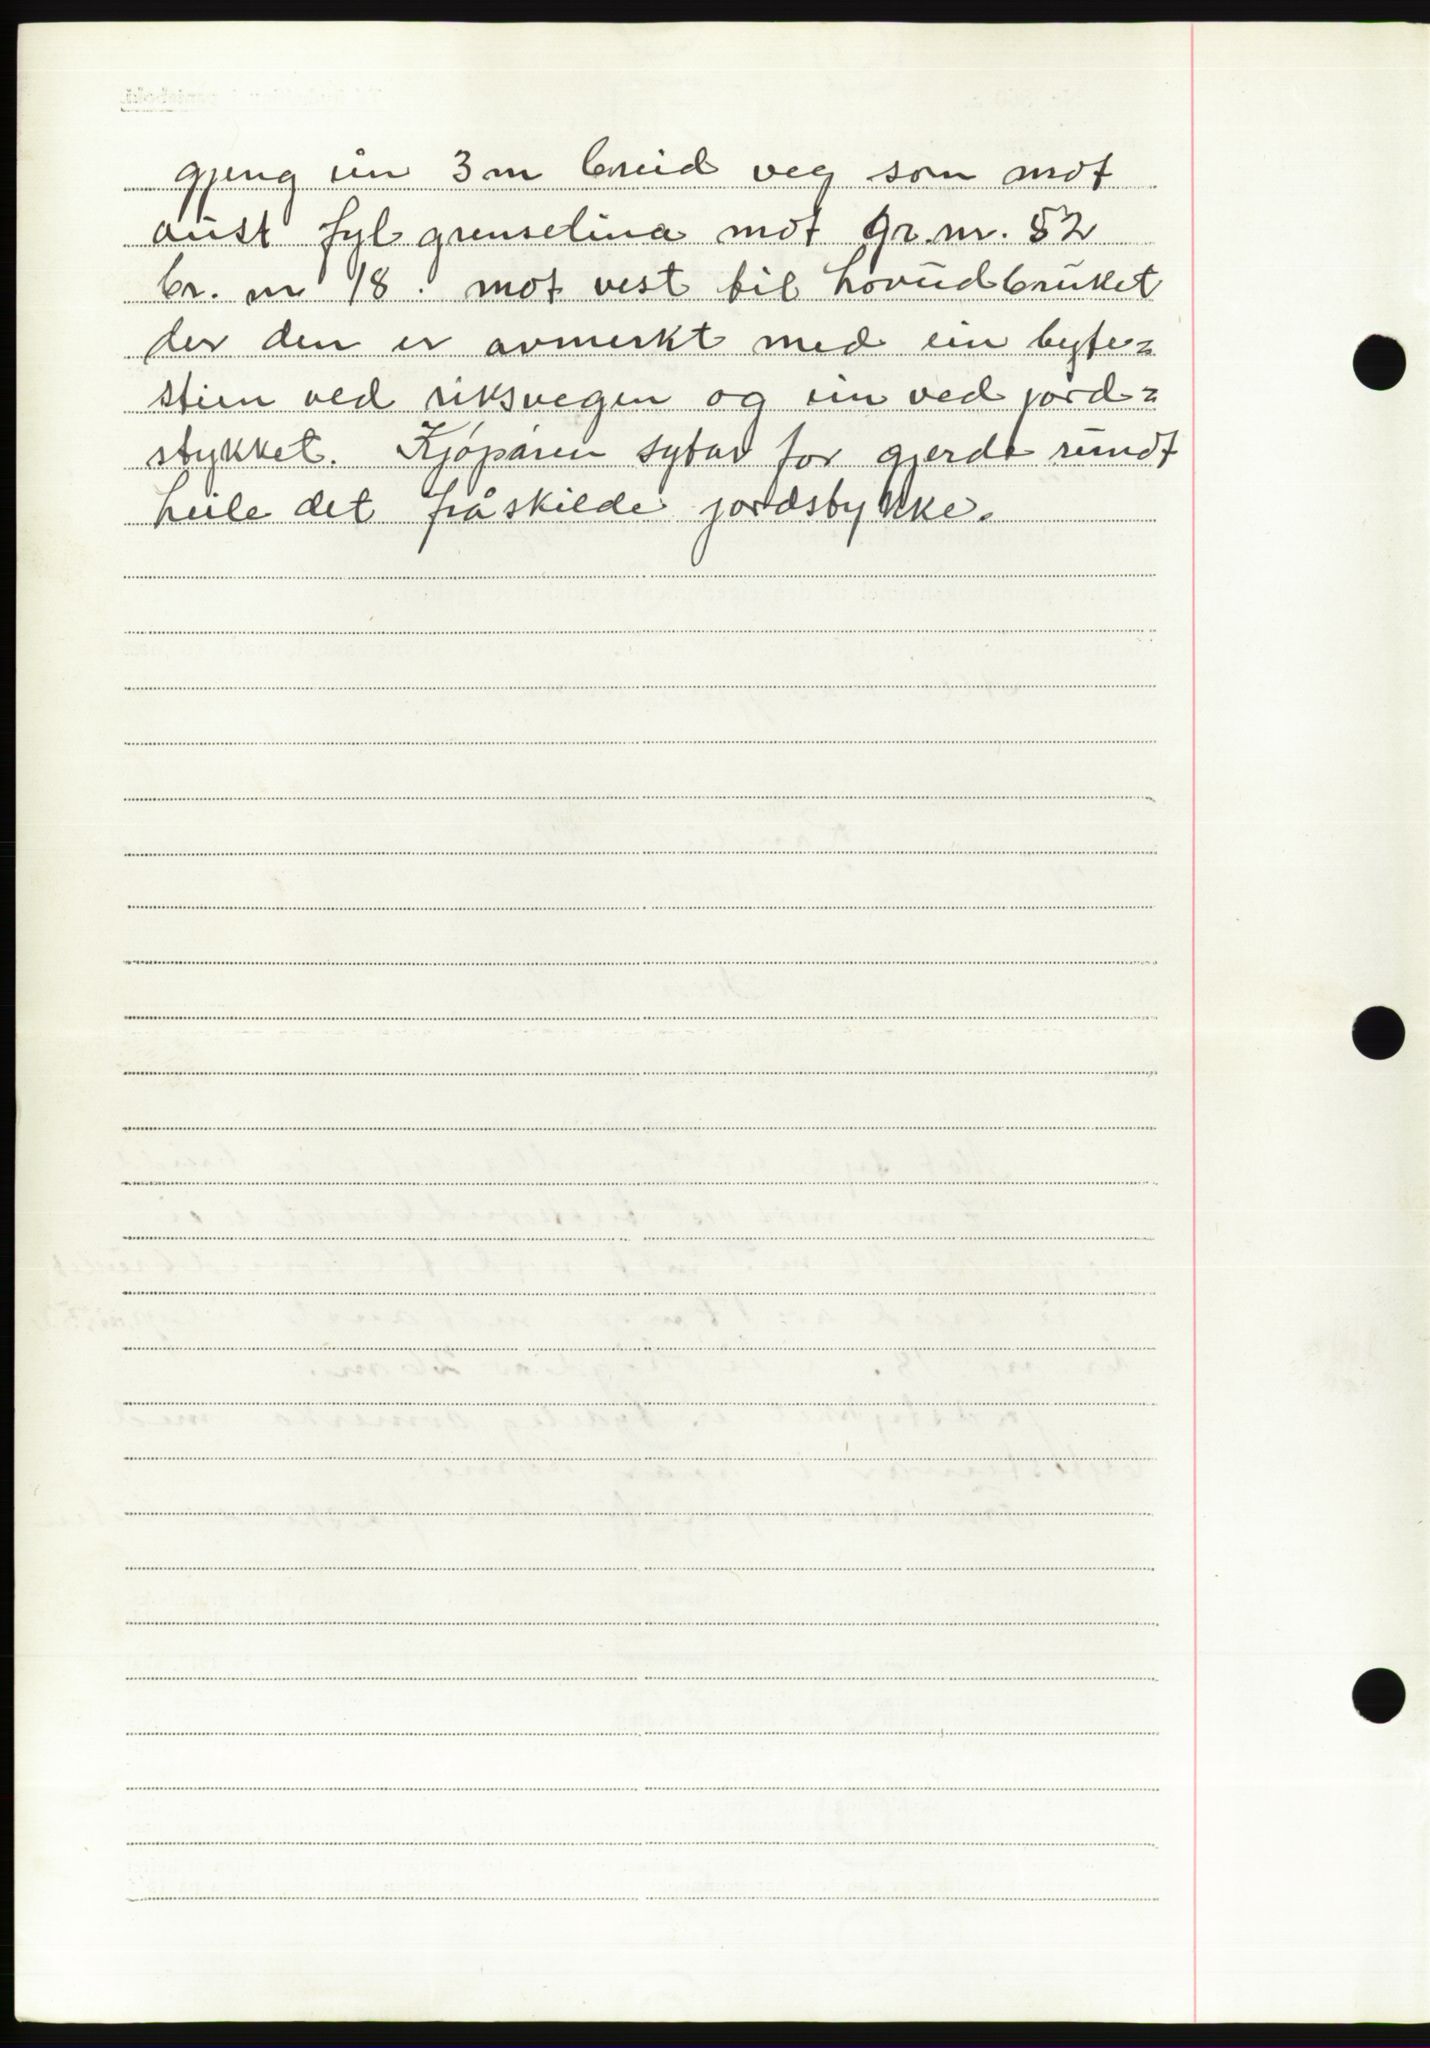 gjeng ein 3 m breid veg som mot
aust fyl grenselina mot gr. nr. 52
br. nr 18. mot vest til hovudbruket
der den er avmerkt med ein byte=
stien ved riksvegen og ein ved jord=
stykket. Kjøparen sytar for gjerde rundt
heile det fråskilde jordstykke.